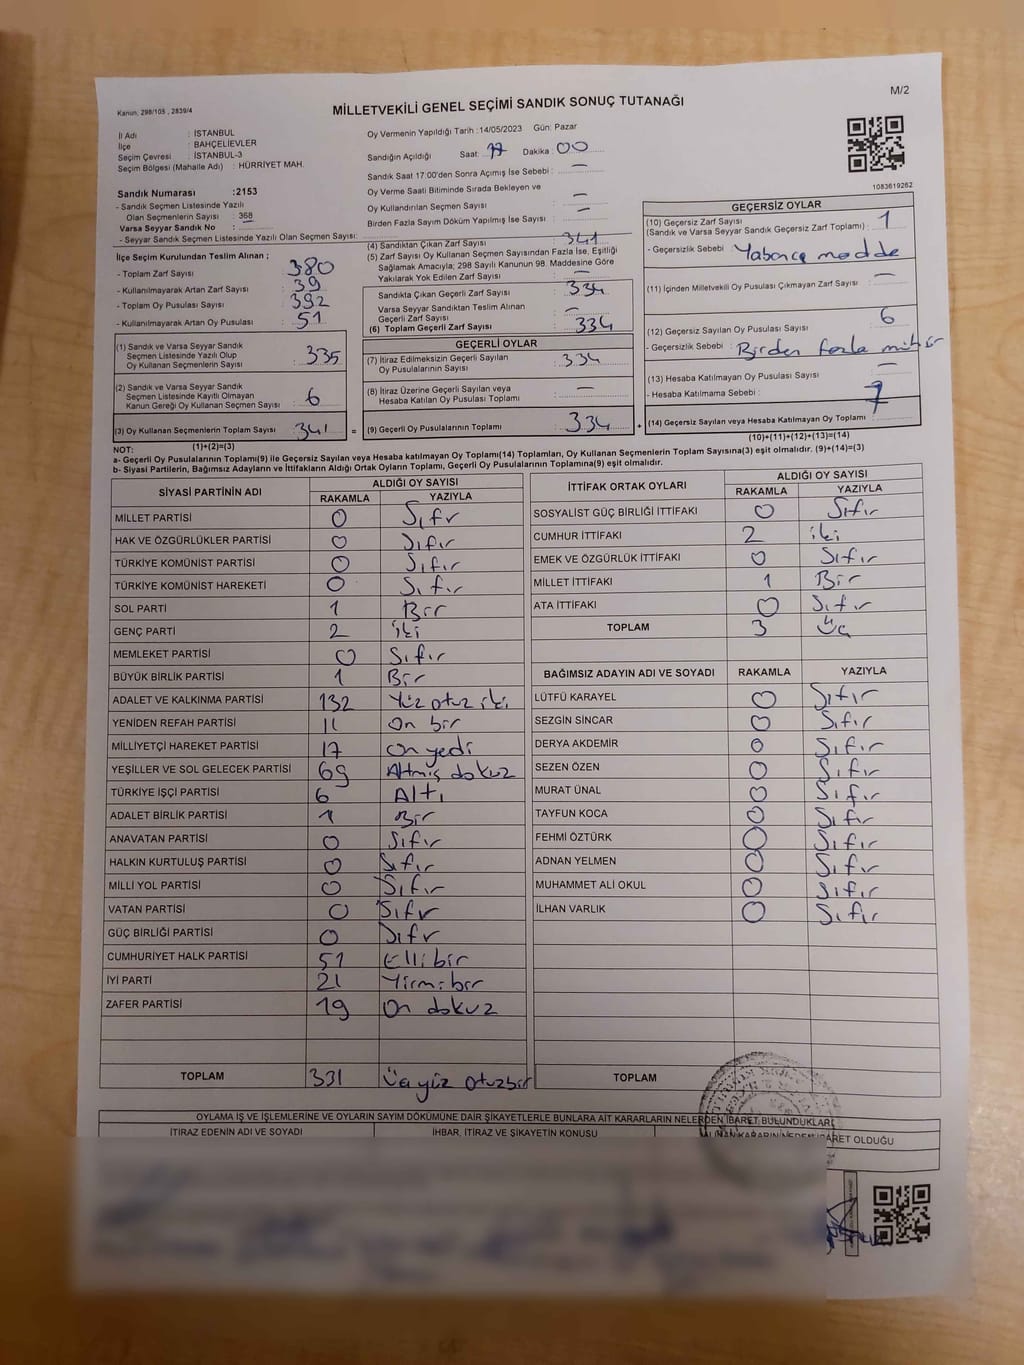 M/2
Kanun, 298/105 , 2839/4
MİLLETVEKİLİ GENEL SEÇİMİ SANDIK SONUÇ TUTANAĞI
İl Adı : İSTANBUL
İlçe : BAHÇELİEVLER
Seçim Çevresi : İSTANBUL-3
Seçim Bölgesi (Mahalle Adı) : HÜRRİYET MAH.
Oy Vermenin Yapıldığı Tarih :14/05/2023 Gün: Pazar
Sandığın Açıldığı Saat: 17 Dakika: 00
Sandık Saat 17:00'den Sonra Açımış İse Sebebi : —
Oy Verme Saati Bitiminde Sırada Bekleyen ve
Oy Kullandırılan Seçmen Sayısı : —
Birden Fazla Sayım Döküm Yapılmış İse Sayısı : —
1083619262
Sandık Numarası :2153
- Sandık Seçmen Listesinde Yazılı
Olan Seçmenlerin Sayısı : 368
Varsa Seyyar Sandık No :
- Seyyar Sandık Seçmen Listesinde Yazılı Olan Seçmen Sayısı:
İlçe Seçim Kurulundan Teslim Alınan ;
- Toplam Zarf Sayısı : 380
- Kullanılmayarak Artan Zarf Sayısı : 39
- Toplam Oy Pusulası Sayısı : 392
- Kullanılmayarak Artan Oy Pusulası : 51
(1) Sandık ve Varsa Seyyar Sandık
Seçmen Listesinde Yazılı Olup
Oy Kullanan Seçmenlerin Sayısı : 335
(2) Sandık ve Varsa Seyyar Sandık
Seçmen Listesinde Kayıtlı Olmayan
Kanun Gereği Oy Kullanan Seçmen Sayısı : 6
(3) Oy Kullanan Seçmenlerin Toplam Sayısı : 341 =
(1)+(2)=(3)
(4) Sandıktan Çıkan Zarf Sayısı : 341
(5) Zarf Sayısı Oy Kullanan Seçmen Sayısından Fazla İse, Eşitliği
Sağlamak Amacıyla; 298 Sayılı Kanunun 98. Maddesine Göre
Yakılarak Yok Edilen Zarf Sayısı : —
Sandıkta Çıkan Geçerli Zarf Sayısı : 334
Varsa Seyyar Sandıktan Teslim Alınan
Geçerli Zarf Sayısı : —
(6) Toplam Geçerli Zarf Sayısı : 334
GEÇERLİ OYLAR
(7) İtiraz Edilmeksizin Geçerli Sayılan
Oy Pusulalarının Sayısı : 334
(8) İtiraz Üzerine Geçerli Sayılan veya
Hesaba Katılan Oy Pusulası Toplamı : —
(9) Geçerli Oy Pusulalarının Toplamı : 334 +
GEÇERSİZ OYLAR
(10) Geçersiz Zarf Sayısı : 1
(Sandık ve Varsa Seyyar Sandık Geçersiz Zarf Toplamı)
- Geçersizlik Sebebi : Yabancı madde
(11) İçinden Milletvekili Oy Pusulası Çıkmayan Zarf Sayısı : —
(12) Geçersiz Sayılan Oy Pusulası Sayısı : 6
- Geçersizlik Sebebi : Birden fazla mühür
(13) Hesaba Katılmayan Oy Pusulası Sayısı : —
- Hesaba Katılmama Sebebi :
(14) Geçersiz Sayılan veya Hesaba Katılmayan Oy Toplamı : 7
(10)+(11)+(12)+(13)=(14)
NOT:
a- Geçerli Oy Pusulalarının Toplamı(9) ile Geçersiz Sayılan veya Hesaba katılmayan Oy Toplamı(14) Toplamları, Oy Kullanan Seçmenlerin Toplam Sayısına(3) eşit olmalıdır. (9)+(14)=(3)
b- Siyasi Partilerin, Bağımsız Adayların ve İttifakların Aldığı Ortak Oyların Toplamı, Geçerli Oy Pusulalarının Toplamına(9) eşit olmalıdır.
SİYASİ PARTİNİN ADI ALDIĞI OY SAYISI
RAKAMLA YAZIYLA
MİLLET PARTİSİ 0 Sıfır
HAK VE ÖZGÜRLÜKLER PARTİSİ 0 Sıfır
TÜRKİYE KOMÜNİST PARTİSİ 0 Sıfır
TÜRKİYE KOMÜNİST HAREKETİ 0 Sıfır
SOL PARTİ 1 Bir
GENÇ PARTİ 2 iki
MEMLEKET PARTİSİ 0 Sıfır
BÜYÜK BİRLİK PARTİSİ 1 Bir
ADALET VE KALKINMA PARTİSİ 132 Yüz otuz iki
YENİDEN REFAH PARTİSİ 11 On bir
MİLLİYETÇİ HAREKET PARTİSİ 17 On yedi
YEŞİLLER VE SOL GELECEK PARTİSİ 69 Altmış dokuz
TÜRKİYE İŞÇİ PARTİSİ 6 Altı
ADALET BİRLİK PARTİSİ 1 Bir
ANAVATAN PARTİSİ 0 Sıfır
HALKIN KURTULUŞ PARTİSİ 0 Sıfır
MİLLİ YOL PARTİSİ 0 Sıfır
VATAN PARTİSİ 0 Sıfır
GÜÇ BİRLİĞİ PARTİSİ 0 Sıfır
CUMHURİYET HALK PARTİSİ 51 Ellibir
İYİ PARTİ 21 Yirmibir
ZAFER PARTİSİ 19 On dokuz
TOPLAM 331 Üçyüz otuzbir
İTTİFAK ORTAK OYLARI ALDIĞI OY SAYISI
RAKAMLA YAZIYLA
SOSYALİST GÜÇ BİRLİĞİ İTTİFAKI 0 Sıfır
CUMHUR İTTİFAKI 2 iki
EMEK VE ÖZGÜRLÜK İTTİFAKI 0 Sıfır
MİLLET İTTİFAKI 1 Bir
ATA İTTİFAKI 0 Sıfır
TOPLAM 3 Üç
BAĞIMSIZ ADAYIN ADI VE SOYADI RAKAMLA YAZIYLA
LÜTFÜ KARAYEL 0 Sıfır
SEZGİN SİNCAR 0 Sıfır
DERYA AKDEMİR 0 Sıfır
SEZEN ÖZEN 0 Sıfır
MURAT ÜNAL 0 Sıfır
TAYFUN KOCA 0 Sıfır
FEHMİ ÖZTÜRK 0 Sıfır
ADNAN YELMEN 0 Sıfır
MUHAMMET ALİ OKUL 0 Sıfır
İLHAN VARLIK 0 Sıfır
TOPLAM
OYLAMA İŞ VE İŞLEMLERİNE VE OYLARIN SAYIM DÖKÜMÜNE DAİR ŞİKAYETLERLE BUNLARA AİT KARARLARIN NELERDEN İBARET BULUNDUKLARI
İTİRAZ EDENİN ADI VE SOYADI İHBAR, İTİRAZ VE ŞİKAYETİN KONUSU ALINAN KARARIN NEDEN İBARET OLDUĞU